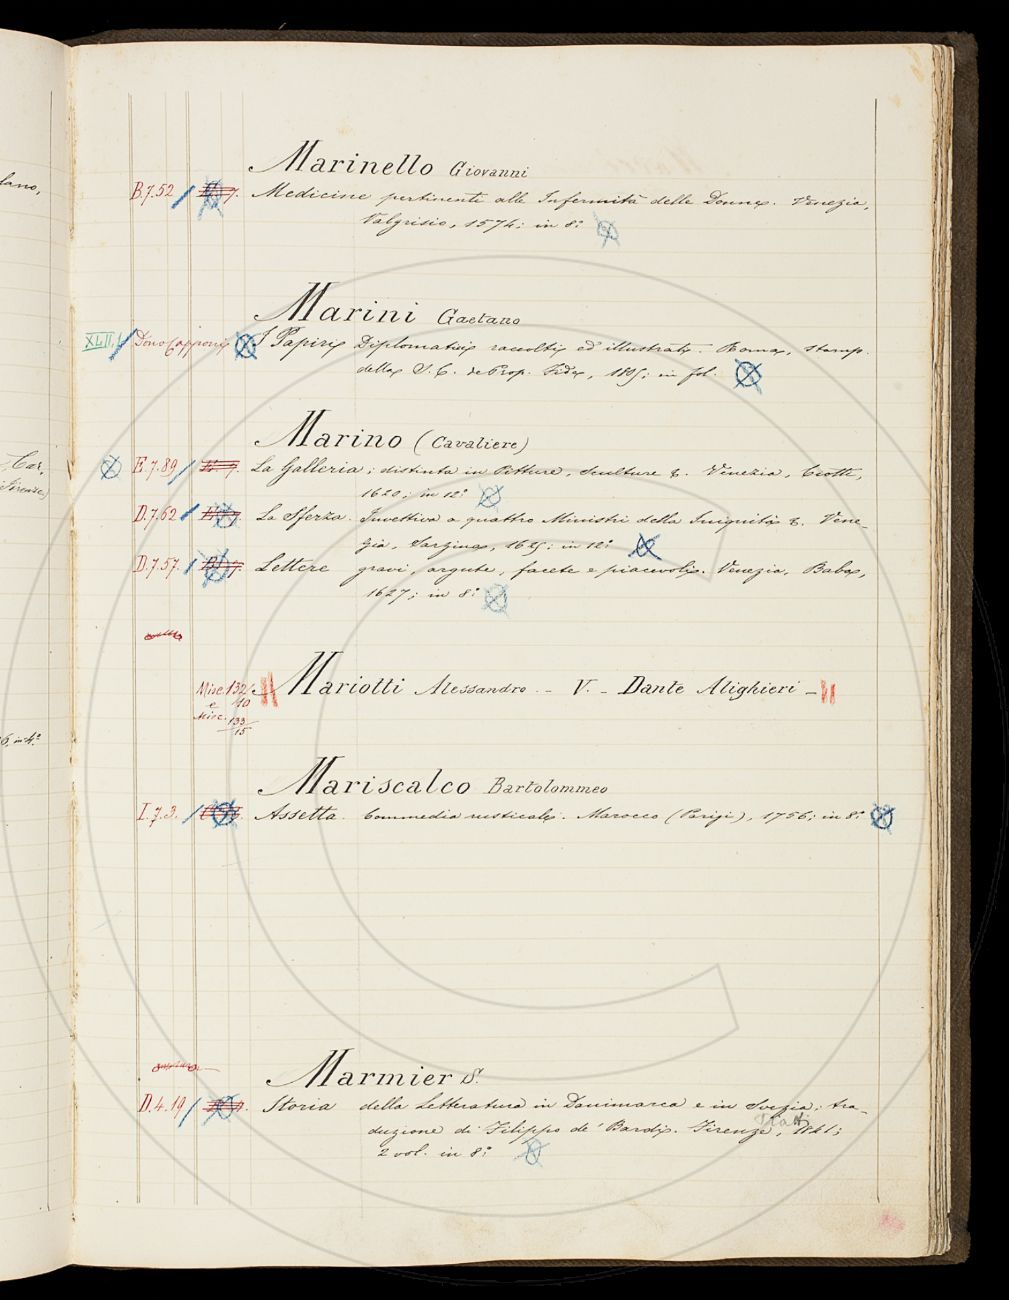 Marinello Giovanni
B.7.52 Medicine pertinenti alle Infermità delle Donne. Venezia,
Valgrisio, 1574; in 8°
Marini Gaetano
XLII. Dino Capponi I Papiri Diplomatici raccolti ed illustrati. Roma, stamp.
della S. C. de Prop. Fide, 1805; in fol.
Marino (Cavaliere)
E.7.89 La Galleria; distinta in Pitture, Sculture &. Venezia, Ciotti,
1620; in 12°
D.7.62 La Sferza. Invettiva a quattro Ministri della Iniquità &. Vene-
zia, Sarzina, 1625; in 12°
D.7.57. Lettere gravi, argute, facete e piacevoli. Venezia, Baba,
1627; in 8°
Misc. 132/10 Mariotti Alessandro - V. - Dante Alighieri -
e
Misc. 133/15
Mariscalco Bartolommeo
I.7.3. Assetta. Commedia rusticale. Marocco (Parigi), 1756; in 8°
Marmier S.
D.4.19 Storia della Letteratura in Danimarca e in Svezia; tra-
duzione di Filippo de' Bardi. Firenze, 1841;
2 vol. in 8°
lano,
Car.
Firenze)
6. in 4°